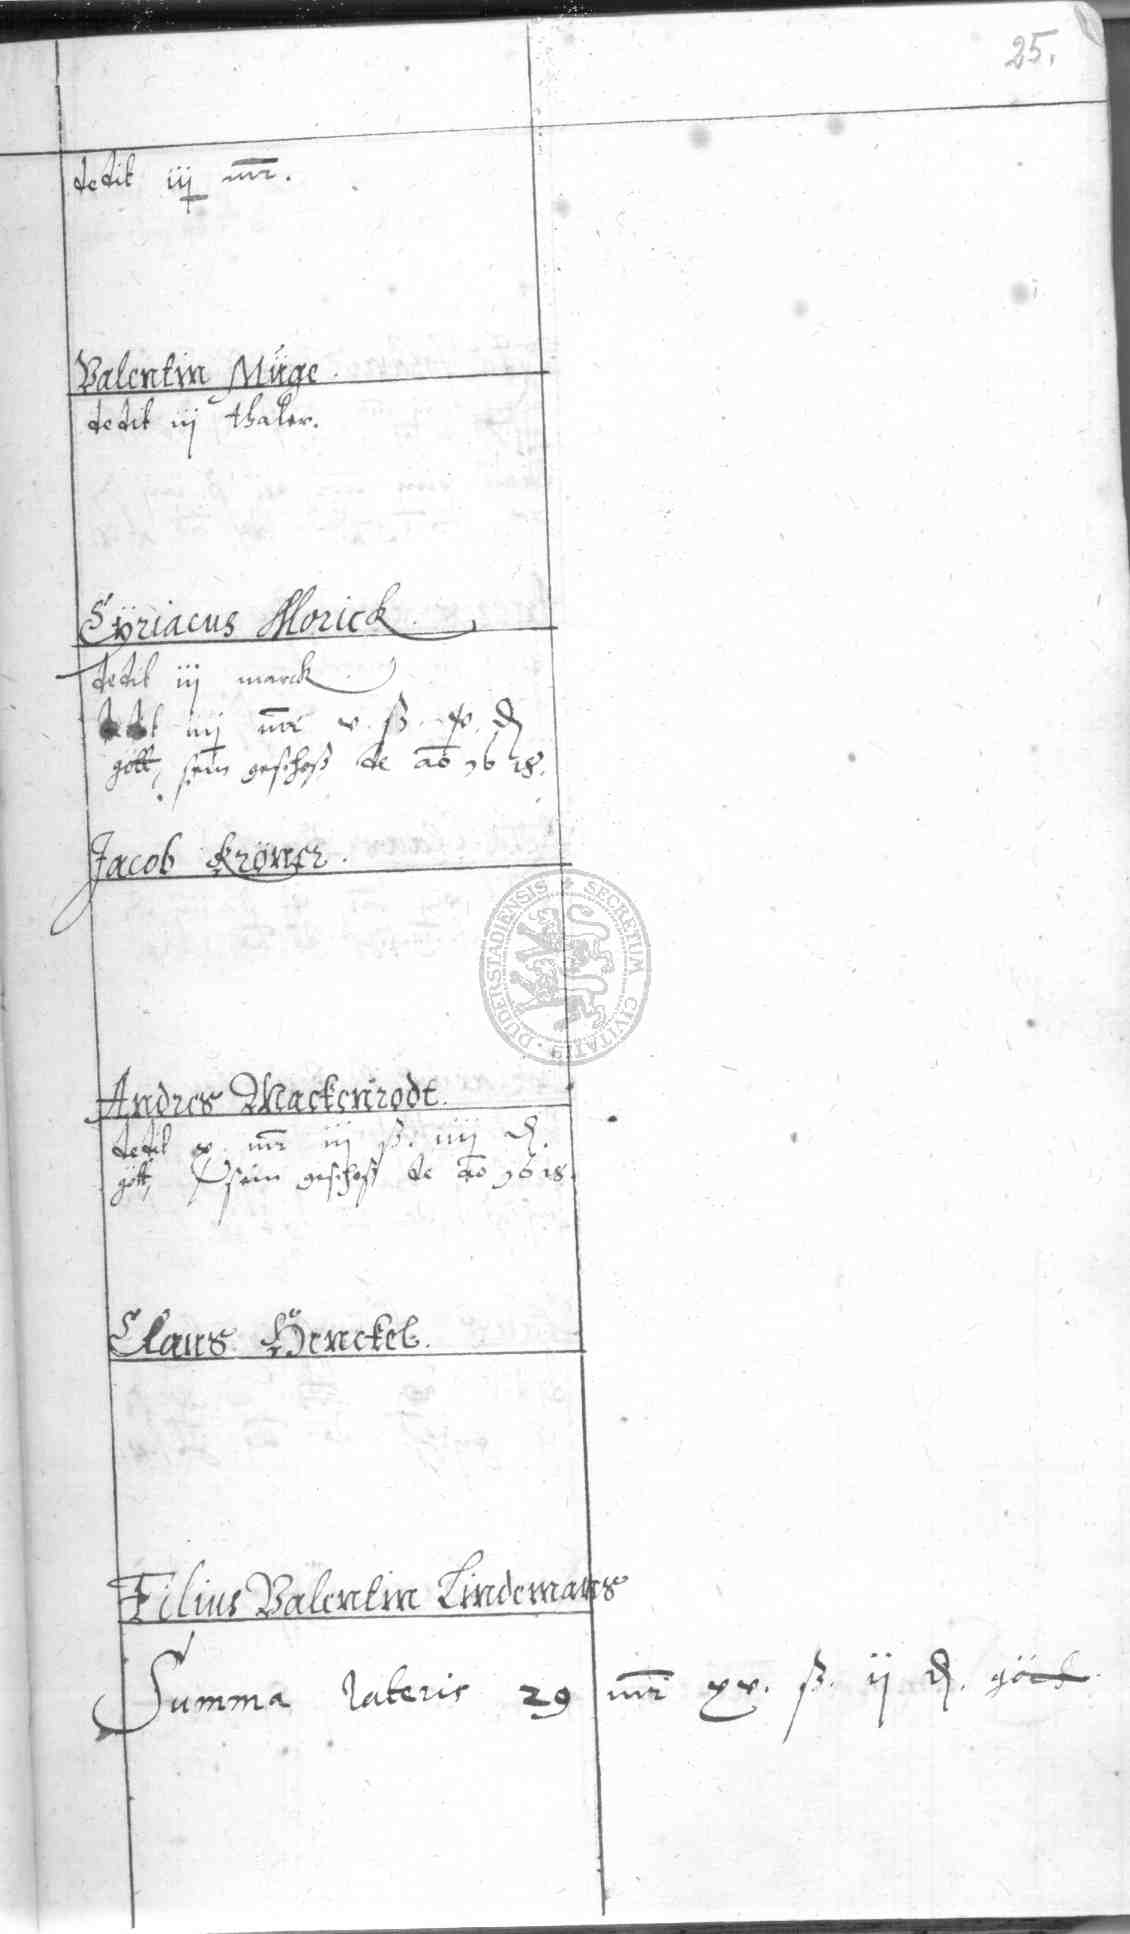 25.
dedit iij mr.
Valentin Müge.
dedit iij thaler.
Cÿriacus Morick.
dedit iij marck
dedit iiij mr v. ß. iiij. d
gött, sein geschoß de ao 1618.
Jacob Kröner.
DUDERSTADIENSIS SECRETUM CIVITATIS
Andres Mackenrodt.
dedit x. mr iij ß. iiij d.
gött, sein geschoß de ao 1618.
Claus Henckel.
Filius Valentin Lindemans
Summa lateris 29 mr xv. ß. ij d. gött